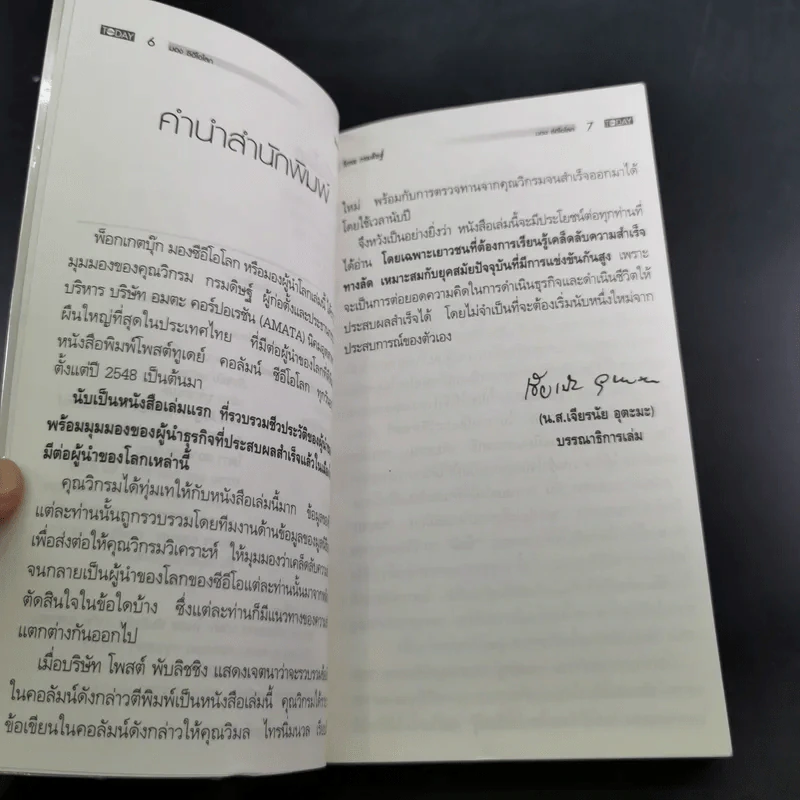 TODAY 6 มอง ซีอีโอโลก
คำนำสำนักพิมพ์
พ็อกเกตบุ๊ก มองซีอีโอโลก หรือมองผู้นำโลกเล่มนี้
มุมมองของคุณวิกรม กรมดิษฐ์ ผู้ก่อตั้งและประธาน
บริหาร บริษัท อมตะ คอร์ปอเรชัน (AMATA)
ผืนใหญ่ที่สุดในประเทศไทย ที่มีต่อผู้นำของโลก
หนังสือพิมพ์โพสต์ทูเดย์ คอลัมน์ ซีอีโอโลก
ตั้งแต่ปี 2548 เป็นต้นมา
นับเป็นหนังสือเล่มแรก ที่รวบรวมชีวประวัติของ
พร้อมมุมมองของผู้นำธุรกิจที่ประสบผลสำเร็จแล้ว
มีต่อผู้นำของโลกเหล่านี้
คุณวิกรมได้ทุ่มเทให้กับหนังสือเล่มนี้มาก ข้อมูล
แต่ละท่านนั้นถูกรวบรวมโดยทีมงานด้านข้อมูลของ
เพื่อส่งต่อให้คุณวิกรมวิเคราะห์ ให้มุมมองว่าเคล็ดลับ
จนกลายเป็นผู้นำของโลกของซีอีโอแต่ละท่านนั้นมาจาก
ตัดสินใจในข้อใดบ้าง ซึ่งแต่ละท่านก็มีแนวทางของ
แตกต่างกันออกไป
เมื่อบริษัท โพสต์ พับลิชชิง แสดงเจตนาว่าจะรวบรวม
ในคอลัมน์ดังกล่าวตีพิมพ์เป็นหนังสือเล่มนี้ คุณวิกรมได้
ข้อเขียนในคอลัมน์ดังกล่าวให้คุณวิมล ไทรนิ่มนวล
วิกรม กรมดิษฐ์ มอง ซีอีโอโลก 7 TODAY
ใหม่ พร้อมกับการตรวจทานจากคุณวิกรมจนสำเร็จออกมาได้
โดยใช้เวลานับปี
จึงหวังเป็นอย่างยิ่งว่า หนังสือเล่มนี้จะมีประโยชน์ต่อทุกท่านที่
ได้อ่าน โดยเฉพาะเยาวชนที่ต้องการเรียนรู้เคล็ดลับความสำเร็จ
ทางลัด เหมาะสมกับยุคสมัยปัจจุบันที่มีการแข่งขันกันสูง เพราะ
จะเป็นการต่อยอดความคิดในการดำเนินธุรกิจและดำเนินชีวิตให้
ประสบผลสำเร็จได้ โดยไม่จำเป็นที่จะต้องเริ่มนับหนึ่งใหม่จาก
ประสบการณ์ของตัวเอง
(น.ส.เจียรนัย อุตะมะ)
บรรณาธิการเล่ม